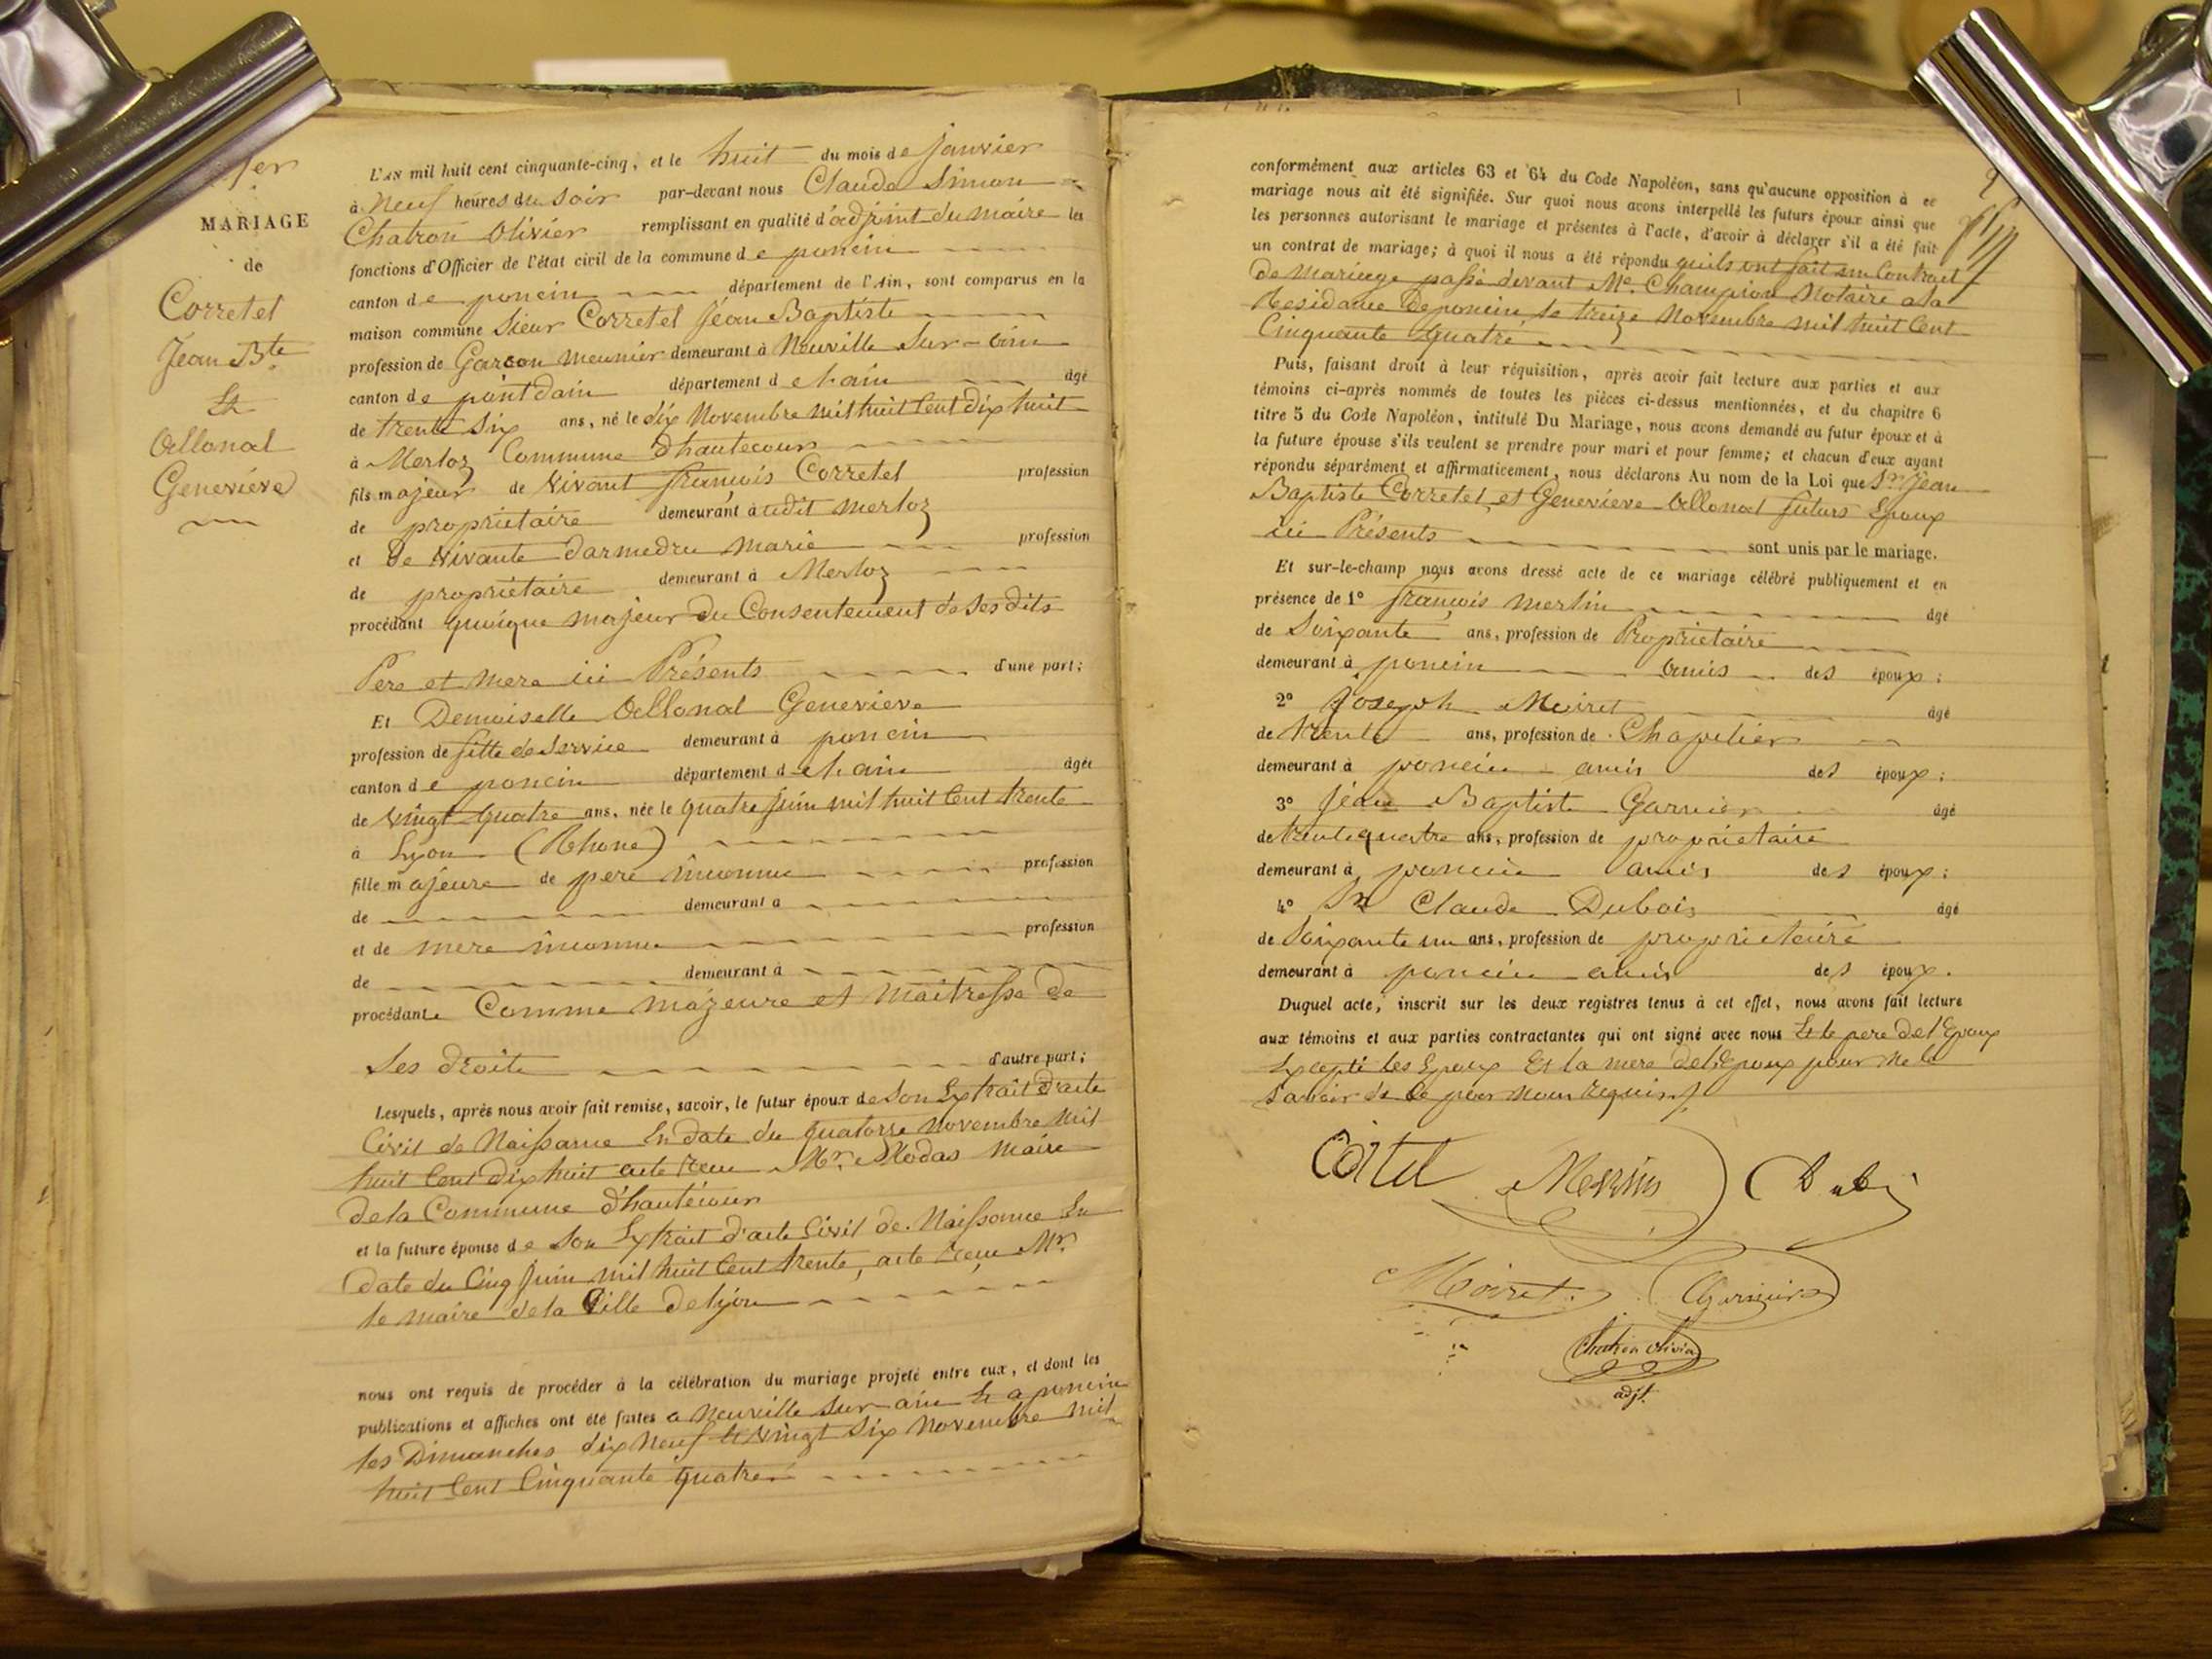 1er
MARIAGE
de
Corretel
Jean Bte
Et
Allonal
Genevieve
L'AN mil huit cent cinquante-cinq, et le huit du mois de janvier
à Neuf heures du soir par-devant nous Claude Simon
Chatron Olivier remplissant en qualité d'adjoint du maire les
fonctions d'Officier de l'état civil de la commune de poncin
canton de poncin département de l'Ain, sont comparus en la
maison commune Sieur Corretel Jean Baptiste
profession de Garcon meunier demeurant à Neuville sur-ain
canton de pontdain département de l'ain âgé
de trente six ans, né le dix Novembre mil huit Cent dix huit
à Merloz Commune d'hautecour
fils majeur de vivant françois Corretel profession
de propriétaire demeurant audit merloz
et De vivante Darmedru marie profession
de propriétaire demeurant à Merloz
procédant quoique majeur du Consentement de ses dits
Pere et mere ici Présents d'une part;
Et Demoiselle Allonal Genevieve
profession de fille de Service demeurant à poncin
canton de poncin département de l'ain âgée
de vingt quatre ans, née le quatre juin mil huit Cent trente
à Lyon (Rhone)
fille majeure de pere inconnu profession
de demeurant à
et de mere inconnue profession
de demeurant à
procédante Comme majeure et maitresse de
Ses droits d'autre part;
Lesquels, après nous avoir fait remise, savoir, le futur époux de son Extrait d'acte
Civil de Naissance En date du quatorze novembre mil
huit Cent dix huit acte recu Mr. Rodas maire
de la Commune d'hautecour
et la future épouse de son Extrait d'acte Civil de Naissance En
date du Cinq juin mil huit Cent trente, acte reçu Mr.
le maire de la Ville de lyon
nous ont requis de procéder à la célébration du mariage projeté entre eux, et dont les
publications et affiches ont été faites a Neuville sur-ain Et a poncin
les Dimanches dix neuf Et vingt six novembre mil
huit Cent Cinquante quatre
conformément aux articles 63 et 64 du Code Napoléon, sans qu'aucune opposition à ce
mariage nous ait été signifiée. Sur quoi nous avons interpellé les futurs époux ainsi que
les personnes autorisant le mariage et présentes à l'acte, d'avoir à déclarer s'il a été fait
un contrat de mariage; à quoi il nous a été répondu quils ont fait un Contrait
de mariage passé devant Me. Champion Notaire a la
Residance de poncin le treize Novembre mil huit Cent
Cinquante quatre
Puis, faisant droit à leur réquisition, après avoir fait lecture aux parties et aux
témoins ci-après nommés de toutes les pièces ci-dessus mentionnées, et du chapitre 6
titre 5 du Code Napoléon, intitulé Du Mariage, nous avons demandé au futur époux et à
la future épouse s'ils veulent se prendre pour mari et pour femme; et chacun d'eux ayant
répondu séparément et affirmativement, nous déclarons Au nom de la Loi que Sr. Jean
Baptiste Corretel et Genevieve Allonal futurs Epoux
ici Présents sont unis par le mariage.
Et sur-le-champ nous avons dressé acte de ce mariage célébré publiquement et en
présence de 1° françois merlin âgé
de Soixante ans, profession de Propriétaire
demeurant à poncin amis des époux;
2° Joseph Moiret âgé
de trente ans, profession de Chapelier
demeurant à poncin amis des époux;
3° Jean Baptiste Garnier âgé
de trente quatre ans, profession de propriétaire
demeurant à poncin amis des époux;
4° Sr Claude Dubois âgé
de Soixante un ans, profession de propriétaire
demeurant à poncin amis des époux.
Duquel acte, inscrit sur les deux registres tenus à cet effet, nous avons fait lecture
aux témoins et aux parties contractantes qui ont signé avec nous Et le pere de l'Epoux
Excepté les Epoux Et la mere de l'Epoux pour ne le
savoir de ce par nous requis
Merlin
Moiret. Garnier
Chatron Olivier
adjt.